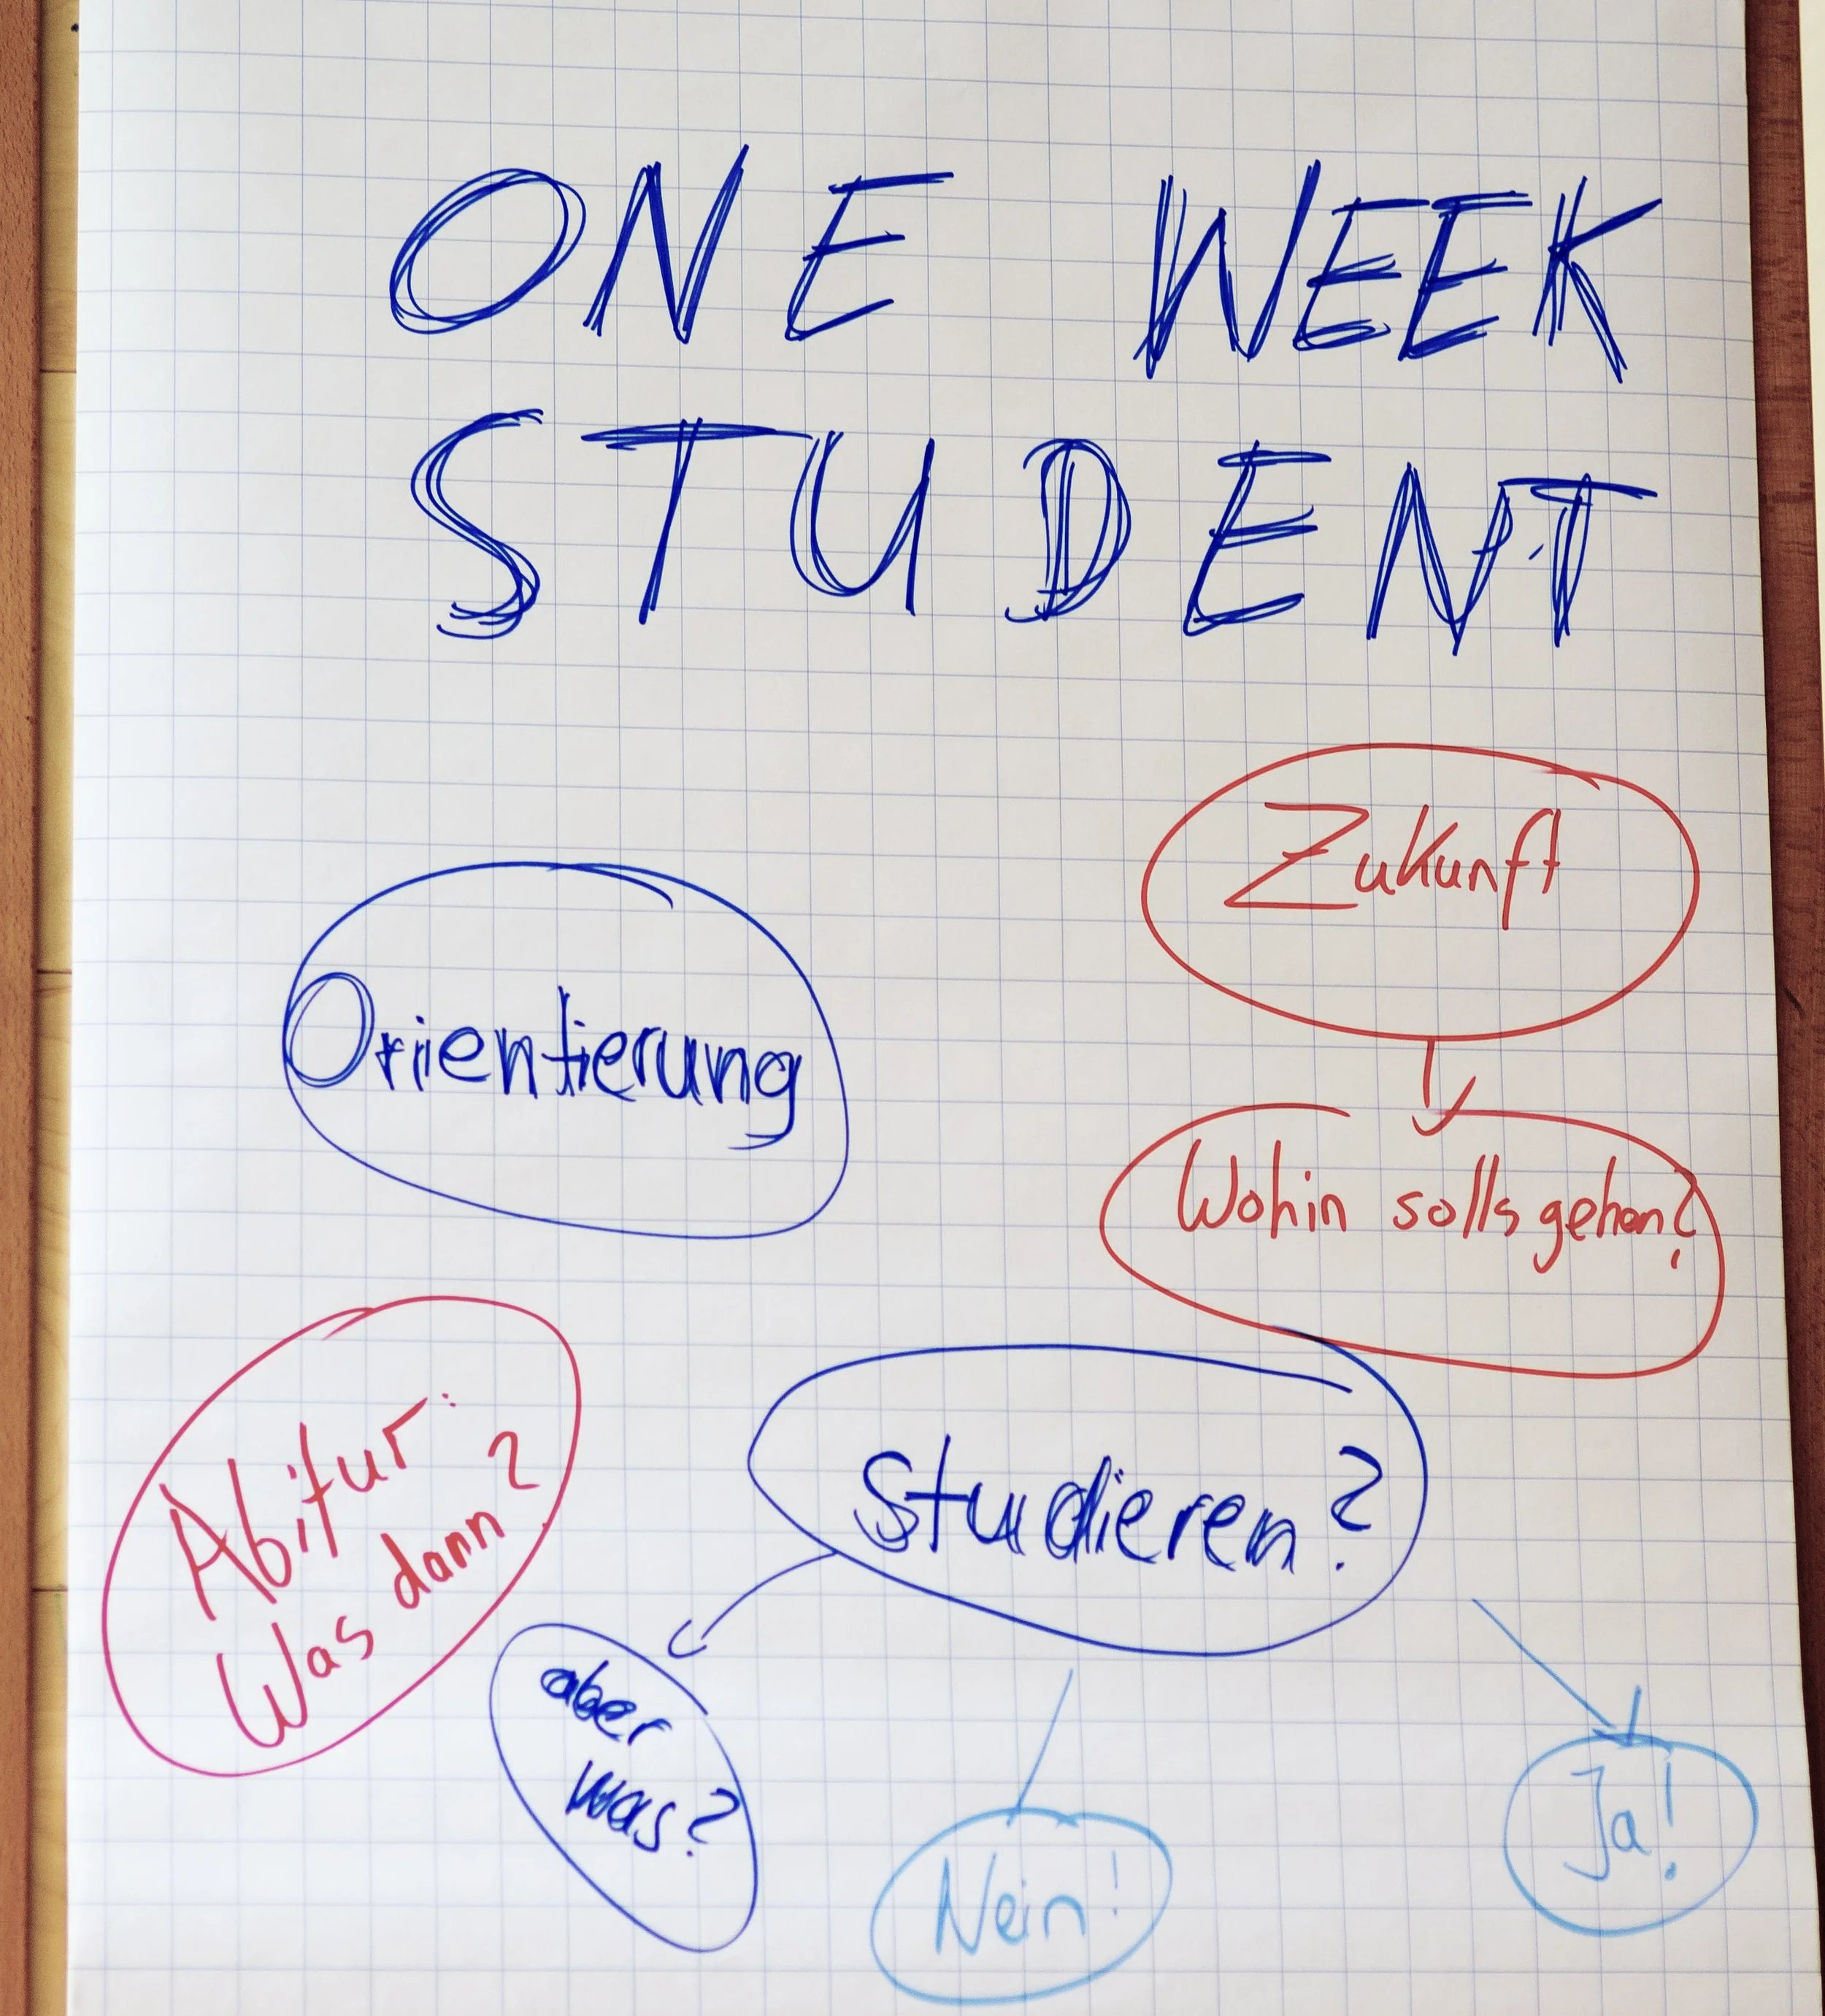 ONE WEEK
STUDENT
Zukunft
Orientierung
Wohin solls gehen?
Abitur:
Was dann?
Studieren?
aber
was?
Nein!
Ja!